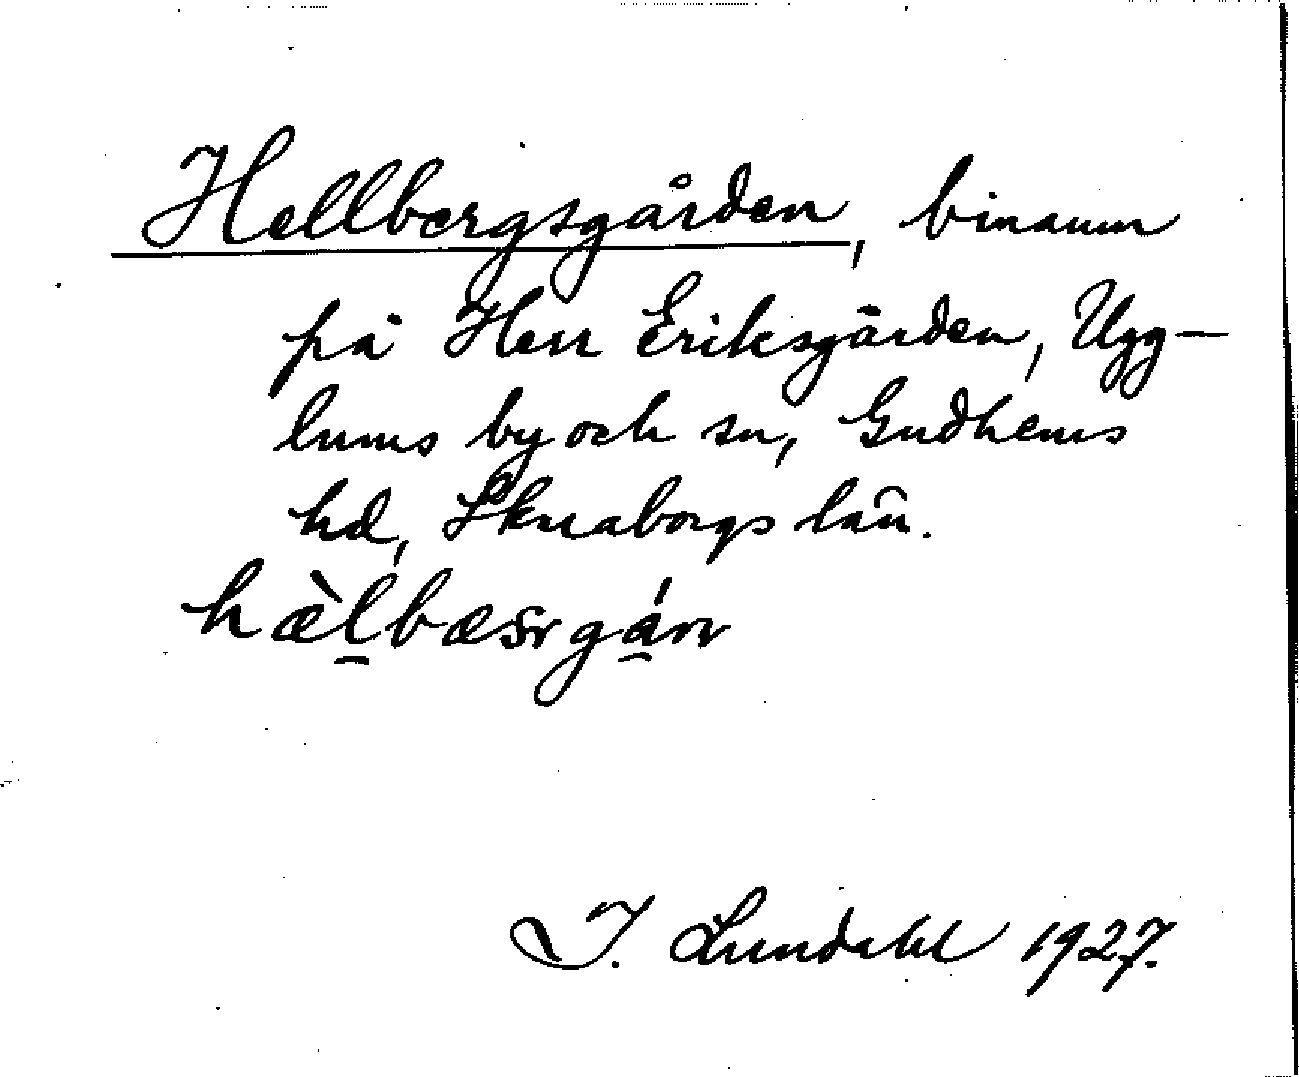 Hellbergsgården, binamn
på Herr Eriksgården, Ugg-
lums by och sn, Gudhems
hd, Skaraborgs län.
I. Lundahl 1927.